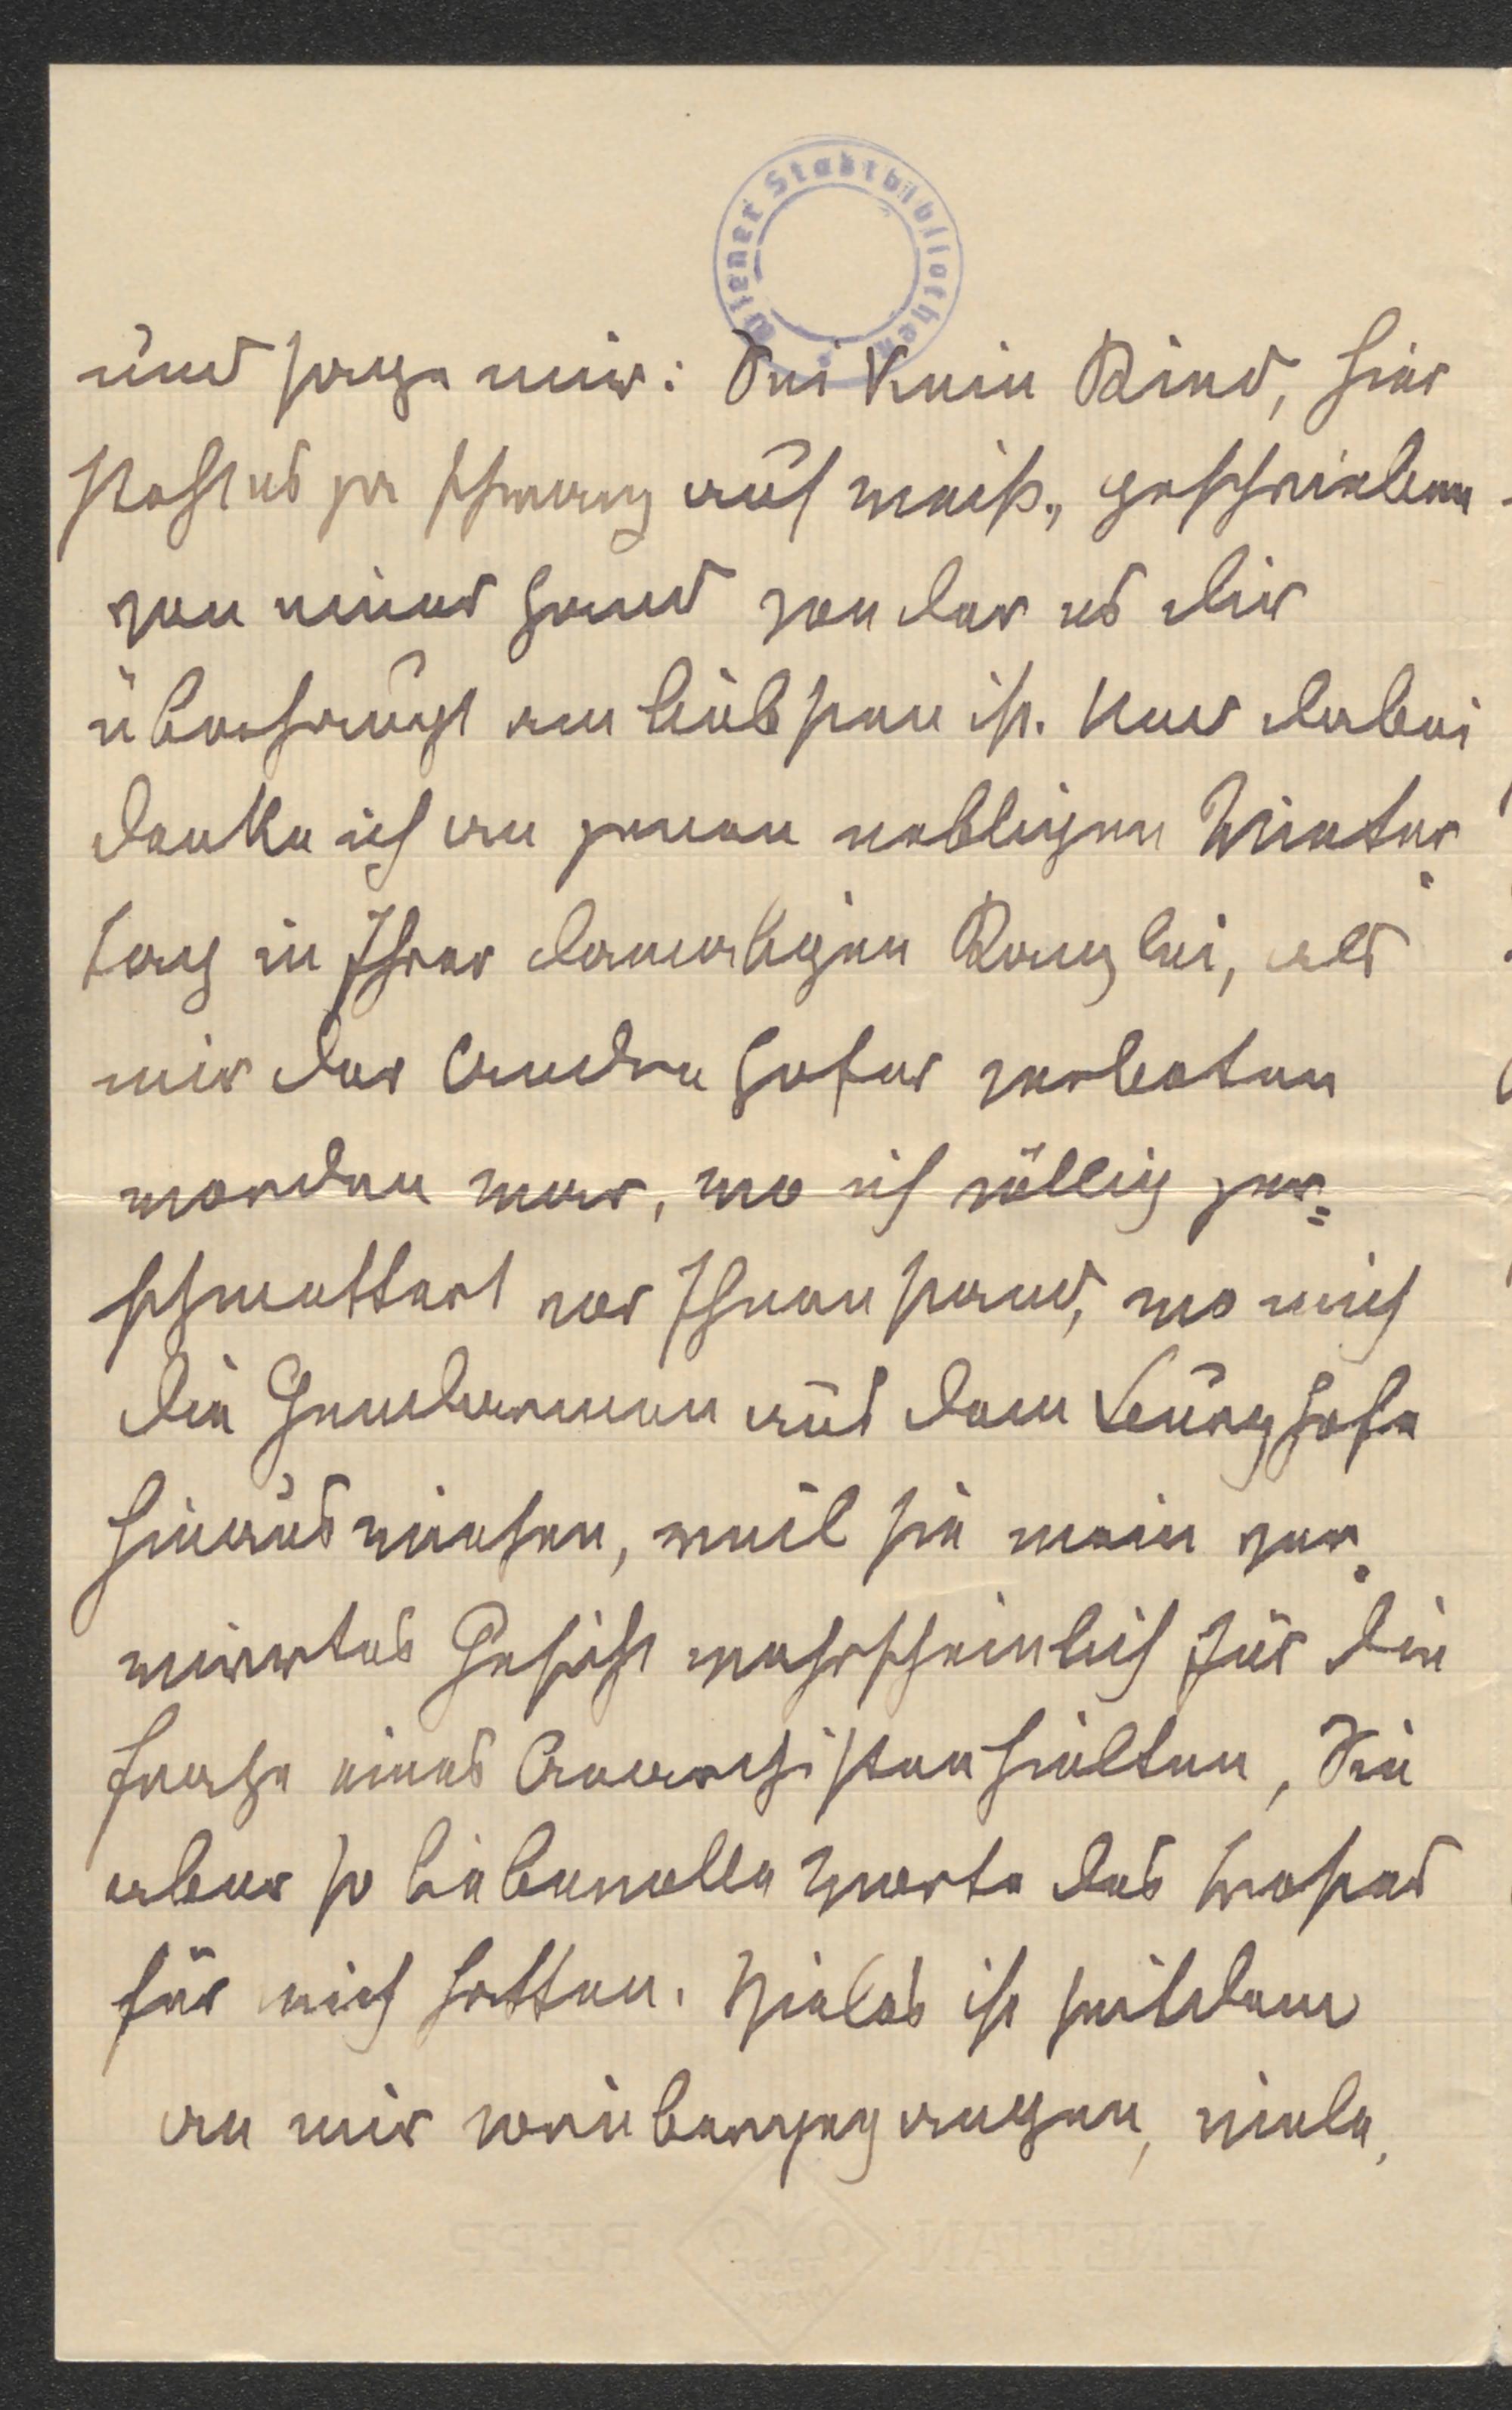 Wiener Stadtbibliothek
und sage mir: Sei kein Kind, hier
steht es ja schwarz auf weiß, geschrieben
von einer Hand von der es dir
überhaupt am liebsten ist. Und dabei
denke ich an jenen nebligen Winter-
tag in Ihrer damaligen Kanzlei, als
mir der Andre Hofer verboten
worden war, wo ich völlig zer=
schmettert vor Ihnen stand, wo mich
die Gendarmen aus dem Burghofe
hinauswiesen, weil sie mein ver-
wirrtes Gesicht wahrscheinlich für die
Fratze eines Anarchisten hielten, Sie
aber so liebevolle Worte des Trostes
für mich hatten. Vieles ist seitdem
an mir vorübergegangen, viele,